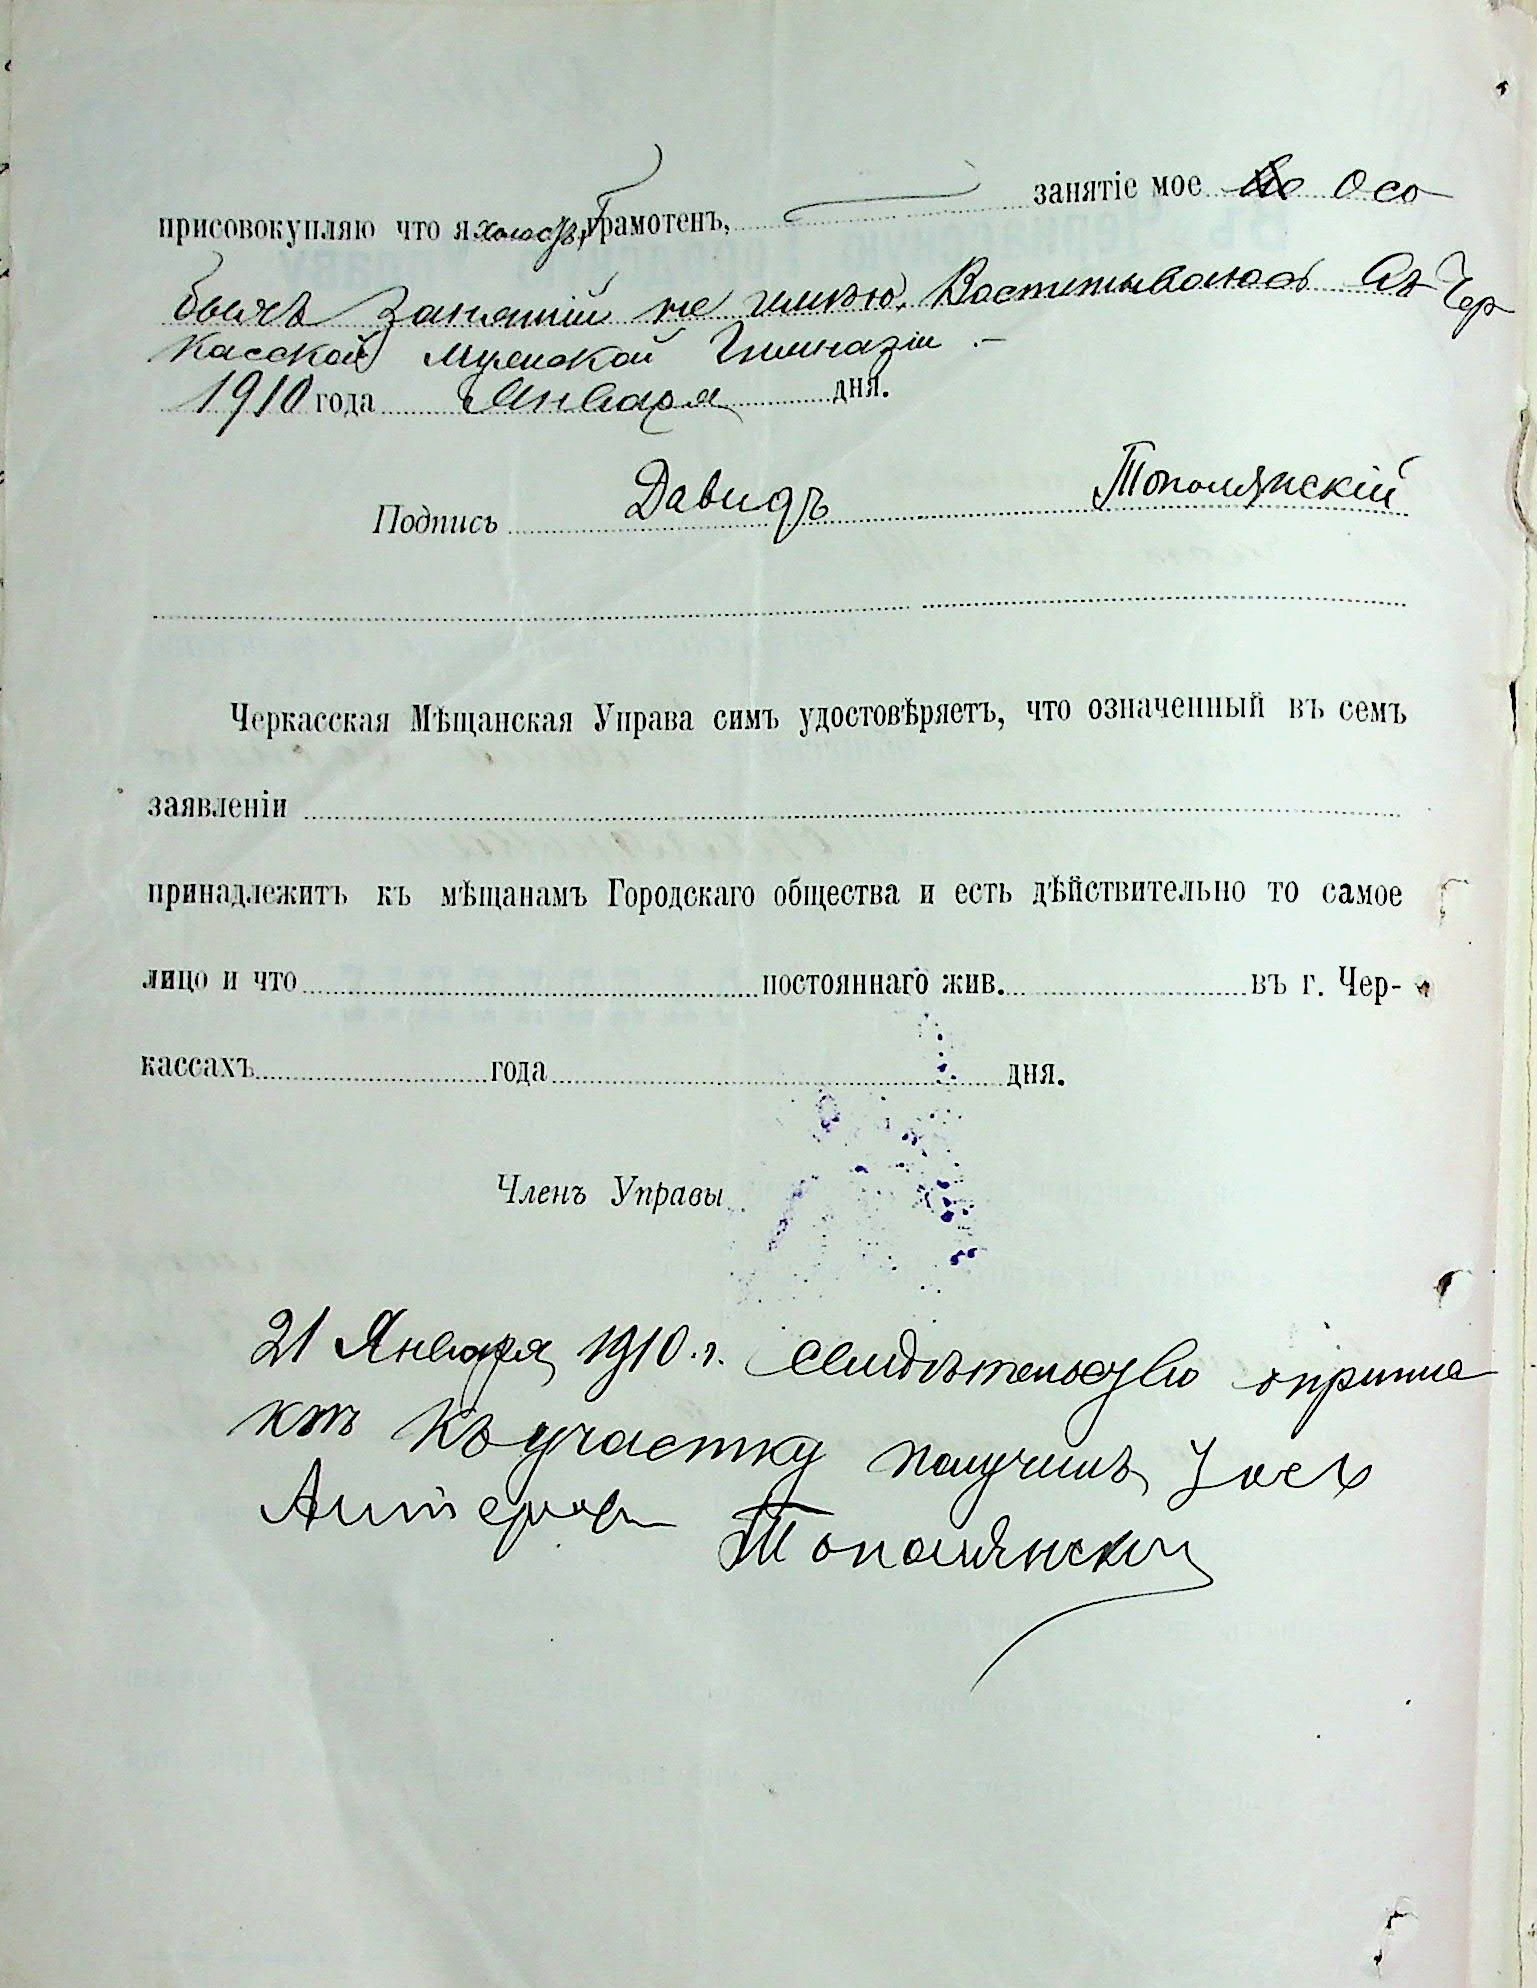 присовокупляю что я холостъ, грамотенъ, занятіе мое осо
быхъ занятій не имѣю. Воспитываюсь въ Чер
касской Мужской Гимназіи.-
1910 года Января дня.
Подпись Давидъ Тополянскій
Черкасская Мѣщанская Управа симъ удостовѣряетъ, что означенный въ семъ
заявленіи
принадлежитъ къ мѣщанамъ Городскаго общества и есть дѣйствительно то самое
лицо и что постояннаго жив. въ г. Чер-
кассахъ года дня.
Членъ Управы
21 Января 1910 г. Свидѣтельство о припис
къ участку получилъ
Тополянскій